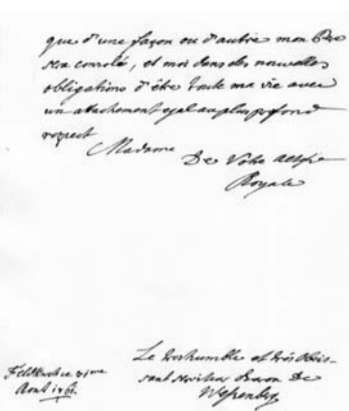 que d'une façon ou d'autre mon Pere
sera consolé, et moi dans des nouvelles
obligations d'être toute ma vie avec
un attachement egal au plus profond
respect
Madame
De Votre Altesse
Royale
Le très humble et très obeis-
sant serviteur Baron De
Août